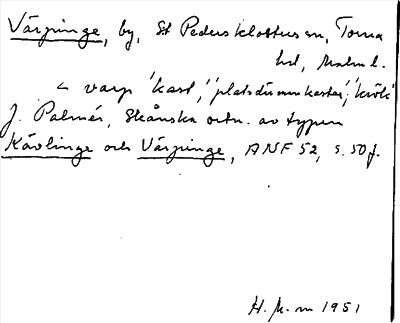 Värpinge, by, St Peders klosters sn, Torna
hd, Malm l.
< varp 'kast,' 'plats där man kastar', 'krök'
J. Palmér, Skånska ortn. av typen
Kävlinge och Värpinge, ANF 52, s. 50 f.
H. M-m 1951